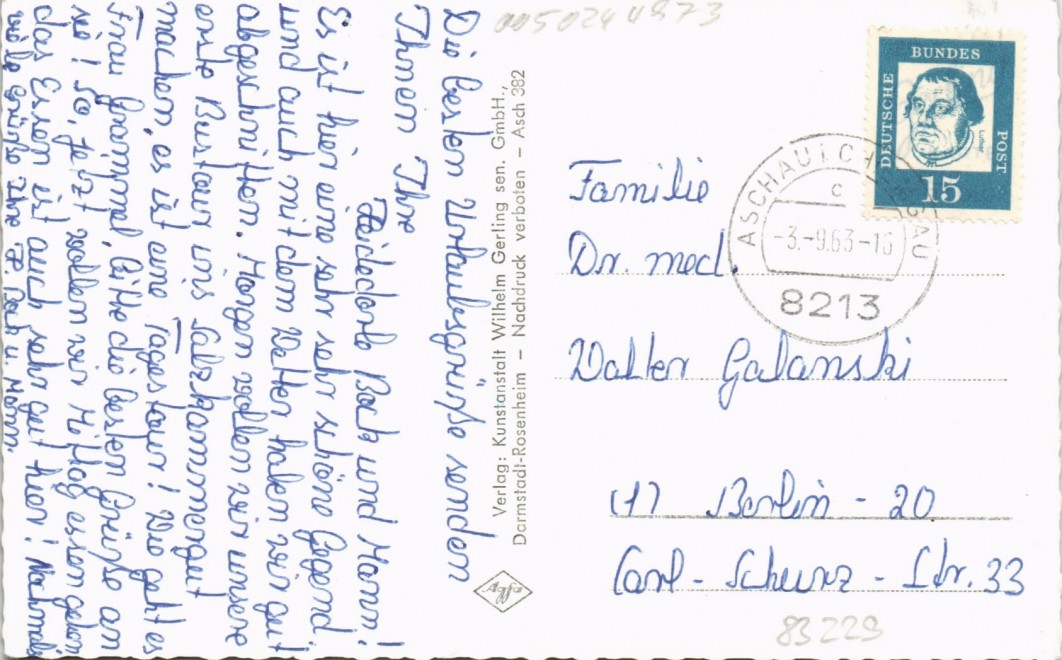 0050244973
Die besten Urlaubsgrüße senden
Ihnen Ihre
Heidedore Bock und Mann!
Es ist hier eine sehr sehr schöne Gegend
und auch mit dem Wetter haben wir gut
abgeschnitten. Morgen wollen wir unsere
erste Bustour ins Salzkammergut
machen, es ist eine Tagestour! Wie geht es
Frau Grammel, bitte die besten Grüße an
sie! So, jetzt wollen wir Mittag essen gehen,
das Essen ist auch sehr gut hier! Nochmals
viele Grüße Ihre H. Bock u. Mann.
Verlag: Kunstanstalt Wilhelm Gerling sen. GmbH.,
Darmstadt-Rosenheim – Nachdruck verboten – Asch 382
Agfa
DEUTSCHE
BUNDES
POST
Luther
15
ASCHAU I CHIEMGAU
c
-3.-9.63-16
8213
Familie
Dr. med.
Walter Galanski
(1) Berlin - 20
Carl - Schurz - Str. 33
83229